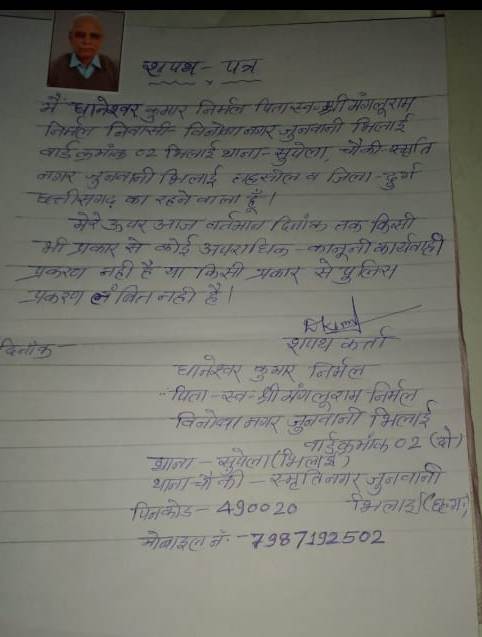 शपथ - पत्र
मैं घानेश्वर कुमार निर्मल पिता स्व- श्री मंगलूराम
निर्मल निवासी- विनोबा नगर जुनवानी भिलाई
वार्ड क्रमांक 02 भिलाई थाना - सुपेला, चौकी- स्मृति
नगर जुनवानी भिलाई तहसील व जिला - दुर्ग
छत्तीसगढ़ का रहने वाला हूँ।
मेरे ऊपर आज वर्तमान दिनांक तक किसी
भी प्रकार से कोई अपराधिक - कानूनी कार्यवाही
प्रकरण नही है या किसी प्रकार से पुलिस
प्रकरण लंबित नही है।
शपथ कर्ता
दिनांक -
घानेश्वर कुमार निर्मल
पिता - स्व - श्री मंगलूराम निर्मल
विनोबा नगर जुनवानी भिलाई
वार्ड क्रमांक 02 (दो)
थाना - सुपेला (भिलाई)
थाना चौकी - स्मृति नगर जुनवानी
पिनकोड - 490020 भिलाई
मोबाइल नं. - 7987192502